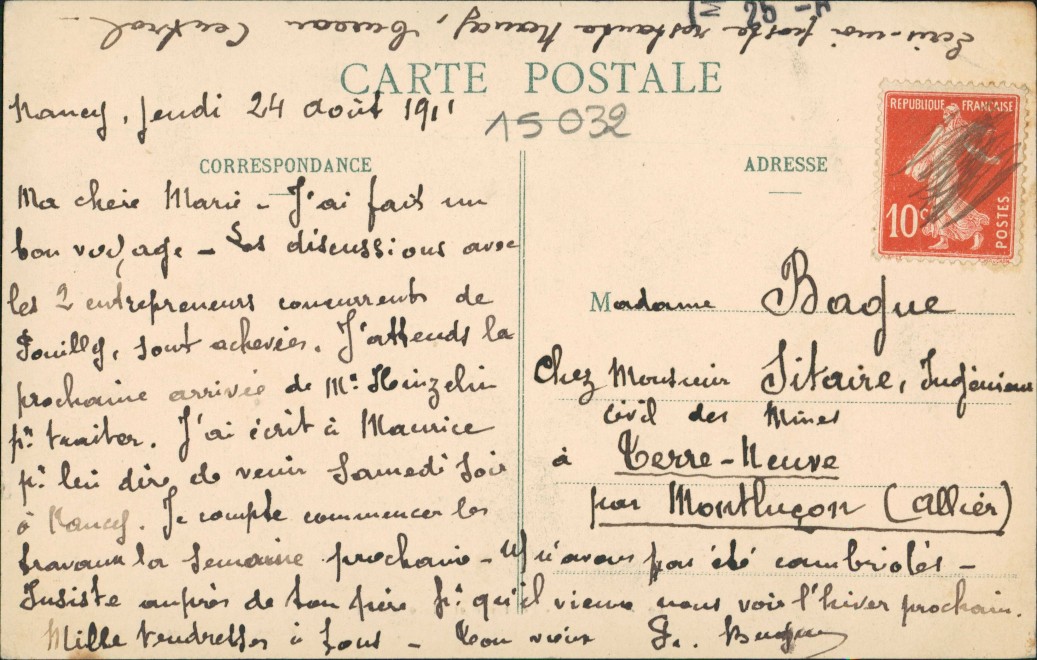 Ecris-moi poste restante Nancy, bureau Central
CARTE POSTALE
Nancy, jeudi 24 août 1911
15032
REPUBLIQUE FRANÇAISE
10c
POSTES
CORRESPONDANCE
Ma chère Marie - J'ai fait un
bon voyage - Les discussions avec
les 2 entrepreneurs concurrents de
Pouilly, sont achevées. J'attends la
prochaine arrivée de Mr Hinzelin
pr traiter. J'ai écrit à Maurice
pr lui dire de venir Samedi soir
à Nancy. Je compte commencer les
travaux la semaine prochaine - Ns n'avons pas été cambriolés -
Insiste auprès de ton père pr qu'il vienne nous voir l'hiver prochain.
Mille tendresses à tous - Ton vieux
ADRESSE
Madame Bague
Chez Monsieur Sitaire, Ingénieur
Civil des Mines
à Terre-Neuve
par Montluçon (Allier)